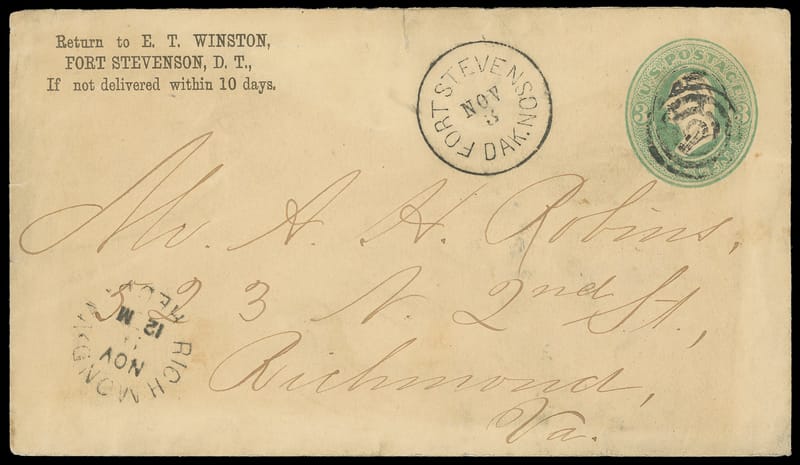 Return to E. T. WINSTON,
FORT STEVENSON, D. T.,
If not delivered within 10 days.
FORT STEVENSON
DAK.
NOV
3
U.S. POSTAGE
3 3
Mr. A. H. Robins,
523 N. 2nd St.,
Richmond,
Va.
RICHMOND
REC'D
NOV
12 M